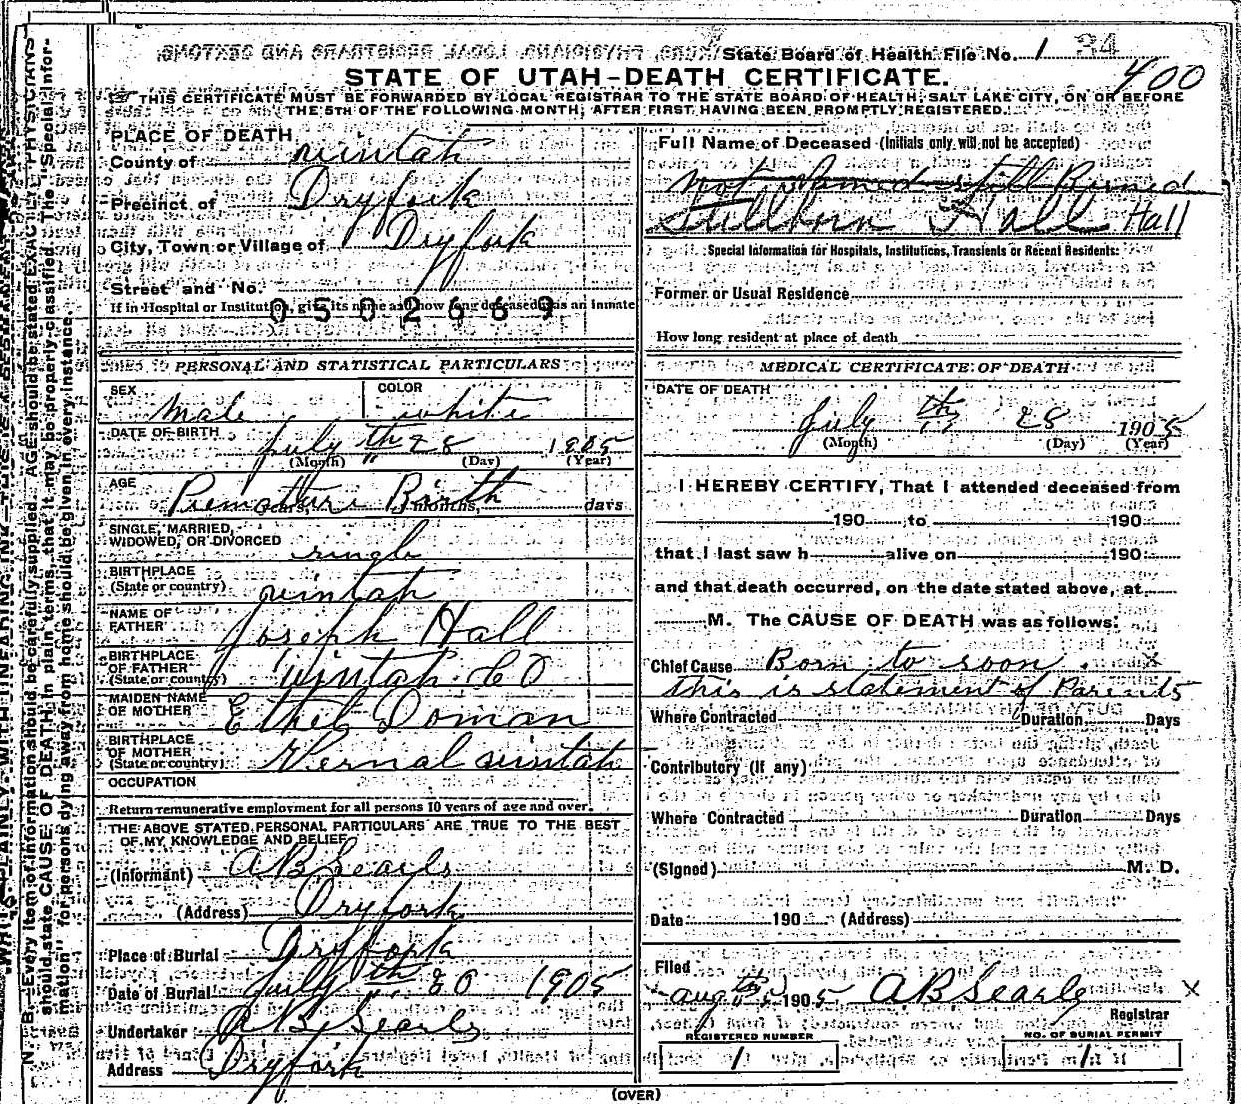 State Board of Health File No. 1 34
400
STATE OF UTAH-DEATH CERTIFICATE.
THIS CERTIFICATE MUST BE FORWARDED BY LOCAL REGISTRAR TO THE STATE BOARD OF HEALTH, SALT LAKE CITY, ON OR BEFORE
THE 5TH OF THE FOLLOWING MONTH; AFTER FIRST HAVING BEEN PROMPTLY REGISTERED.
PLACE OF DEATH
County of uintah
Precinct of Dryfork
City, Town or Village of Dryfork
Street and No.
If in Hospital or Institution, give its name and how long deceased was an inmate
0502669
Full Name of Deceased (Initials only will not be accepted)
Not Named still Borned
Stillborn Hall Hall
Special Information for Hospitals, Institutions, Transients or Recent Residents:
Former or Usual Residence
How long resident at place of death
PERSONAL AND STATISTICAL PARTICULARS
SEX male
COLOR white
DATE OF BIRTH july th 28 1905
(Month) (Day) (Year)
AGE Prematuri Birth
years, months, days
SINGLE, MARRIED,
WIDOWED, OR DIVORCED single
BIRTHPLACE
(State or country) uintah
NAME OF
FATHER Joseph Hall
BIRTHPLACE
OF FATHER
(State or country) uintah CO
MAIDEN NAME
OF MOTHER Ethel Doman
BIRTHPLACE
OF MOTHER
(State or country) Vernal uintah
OCCUPATION
Return remunerative employment for all persons 10 years of age and over.
THE ABOVE STATED PERSONAL PARTICULARS ARE TRUE TO THE BEST
OF MY KNOWLEDGE AND BELIEF
(Informant) A B Searls
(Address) Dryfork
Place of Burial Dryfork
Date of Burial july th 1905
Undertaker A B Searls
Address Dryfork
MEDICAL CERTIFICATE OF DEATH
DATE OF DEATH
july th 28 1905
(Month) (Day) (Year)
I HEREBY CERTIFY, That I attended deceased from
190 to 190
that I last saw h alive on 190
and that death occurred, on the date stated above, at
M. The CAUSE OF DEATH was as follows:
Chief Cause Born to soon. x
this is statement of Parents
Where Contracted Duration Days
Contributory (If any)
Where Contracted Duration Days
(Signed) M. D.
Date 190 (Address)
Filed
aug th 5 1905 A B Searls x
Registrar
REGISTERED NUMBER
1
NO. OF BURIAL PERMIT
1
(OVER)
N. B.-Every item of information should be carefully supplied. AGE should be stated EXACTLY. PHYSICIANS
should state CAUSE OF DEATH in plain terms, that it may be properly classified. The "Special Infor-
mation" for persons dying away from home should be given in every instance.